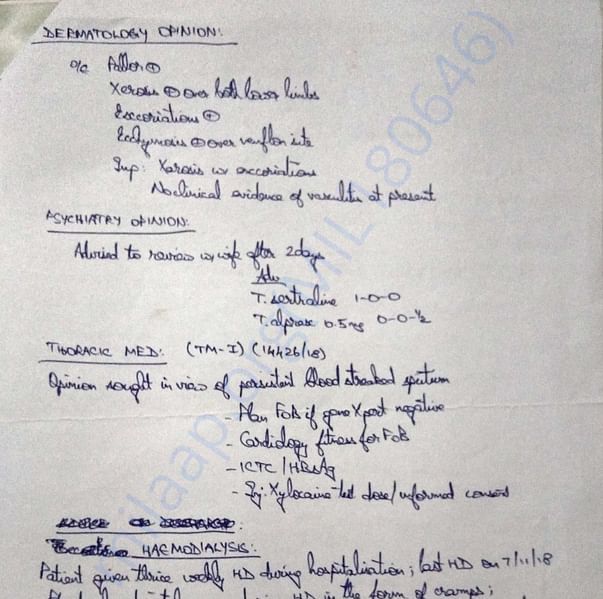 DERMATOLOGY OPINION:
o/e Pallor ⊕
Xerosis ⊕ over both lower limbs
Excoriations ⊕
Ecchymosis ⊕ over venflon site
Imp: Xerosis w excoriations
No clinical evidence of vasculitis at present
PSYCHIATRY OPINION:
Advised to review w wife after 2 days
Adv
T. sertraline 1-0-0
T. alprax 0.5mg 0-0-½
THORACIC MED: (TM-I) (14426/18)
Opinion sought in view of persistent blood streaked sputum
- Plan FOB if gene Xpert negative
- Cardiology fitness for FOB
- ICTC / HBsAg
- Inj: Xylocaine test dose / informed consent
HAEMODIALYSIS:
Patient given thrice weekly HD during hospitalisation; last HD on 7/11/18
HD in the form of cramps;
milaap.org (MIL180646)